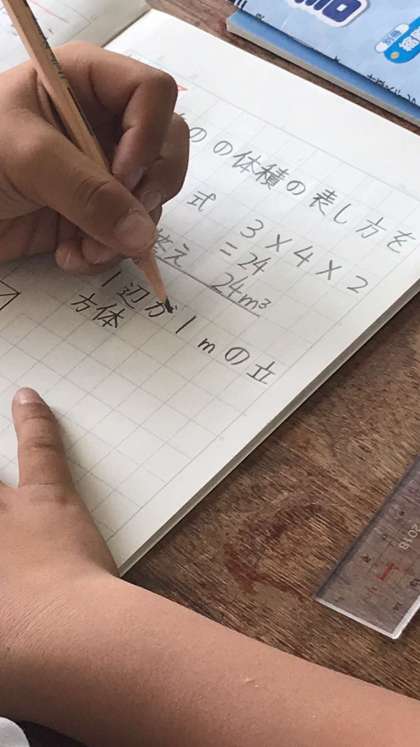 のの体積の表し方を
式 3×4×2
=24
答え 24m³
1辺が1mの立
方体